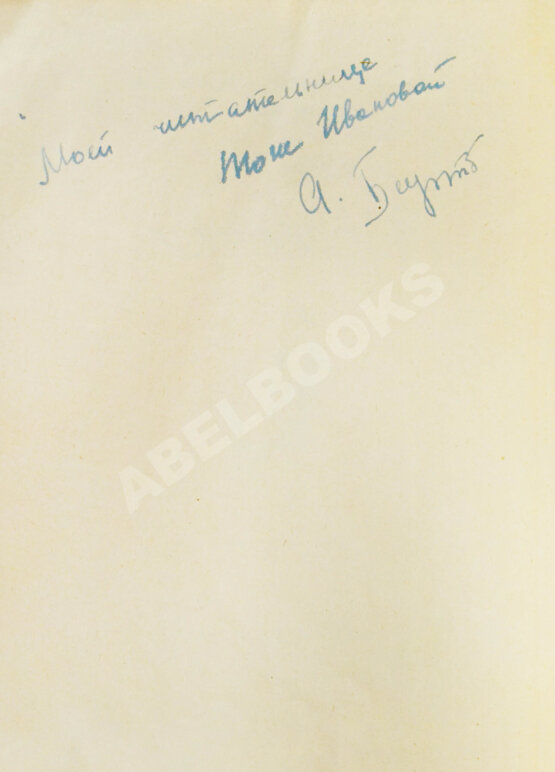 Моей читательнице
Тоне Ивановой
А. Барто
ABELBOOKS